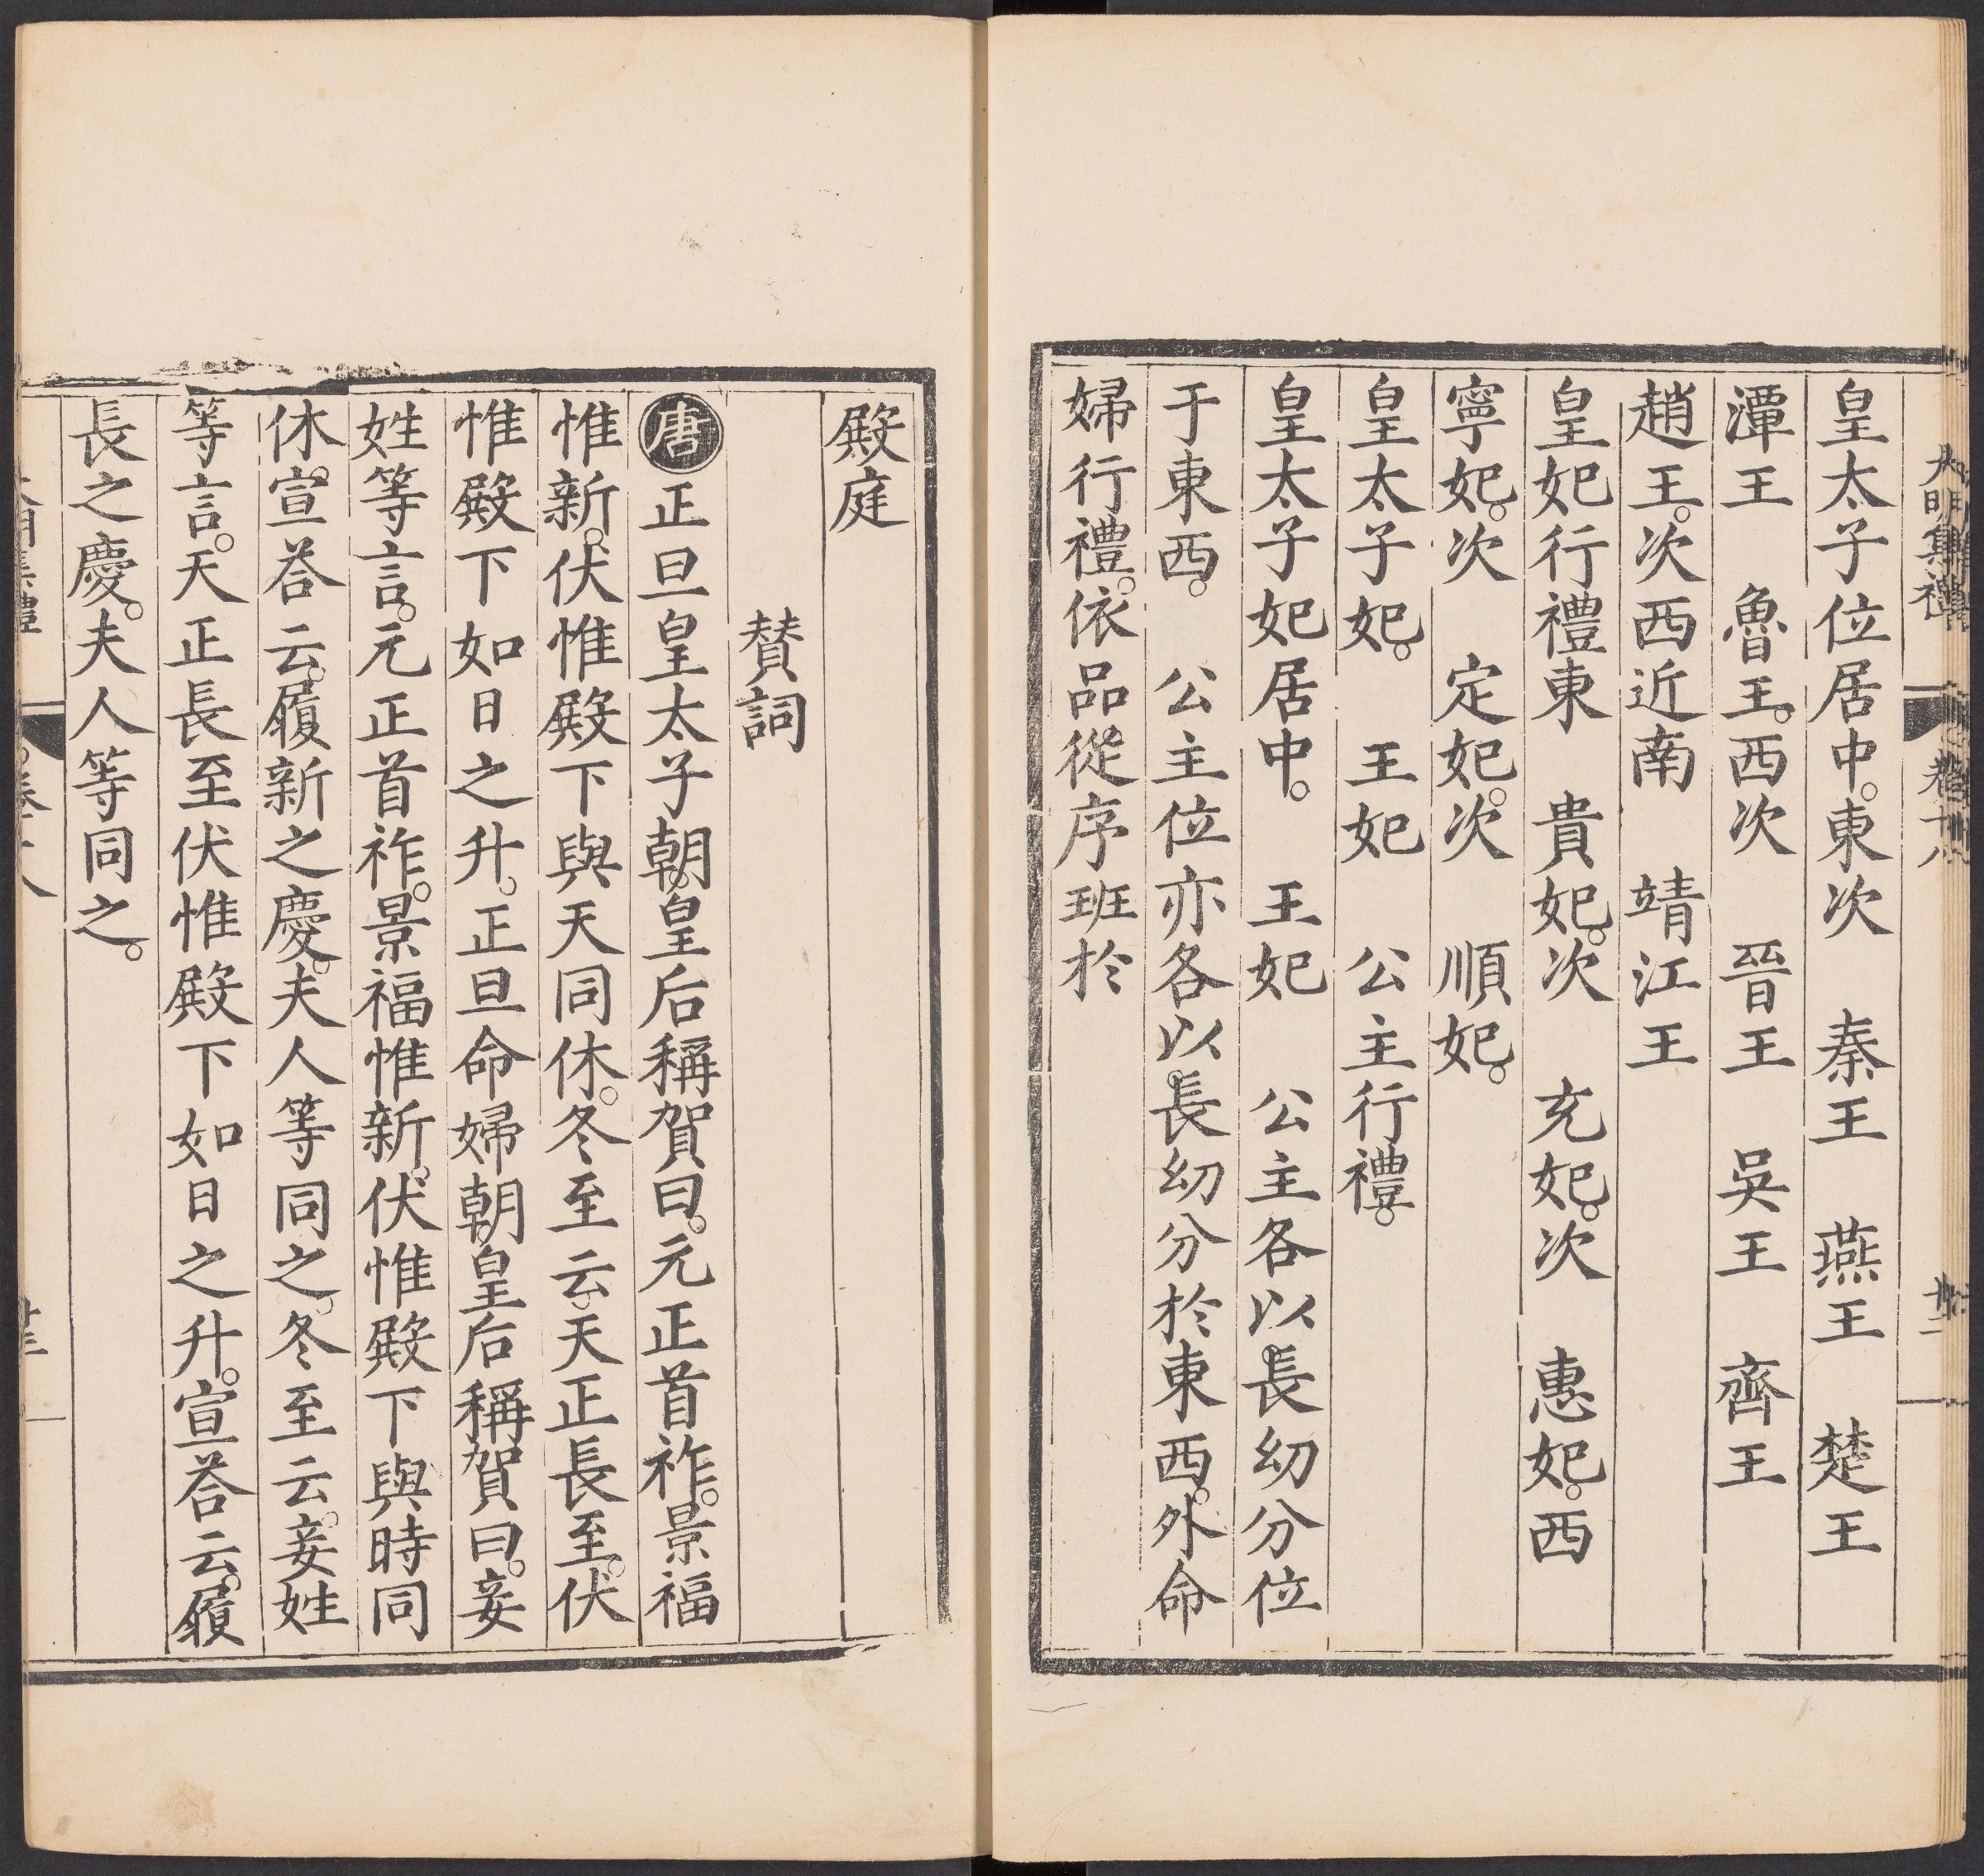 大明集禮 卷十八
皇太子位居中。東次 秦王 燕王 楚王
潭王 魯王。西次 晉王 吳王 齊王
趙王。次西近南 靖江王
皇妃行禮東 貴妃。次 充妃。次 惠妃。西
寧妃。次 定妃。次 順妃。
皇太子妃。 王妃 公主行禮。
皇太子妃居中。 王妃 公主各以長幼分位
于東西。 公主位亦各以長幼分於東西。外命
婦行禮。依品從序班於
殿庭
賛詞
唐正旦皇太子朝。皇后稱賀曰。元正首祚。景福
惟新。伏惟殿下與天同休。冬至云。天正長至。伏
惟殿下如日之升。正旦命婦朝皇后稱賀曰。妾
姓等言。元正首祚。景福惟新。伏惟殿下與時同
休。宣荅云。履新之慶。夫人等同之。冬至云。妾姓
等言。天正長至伏惟殿下如日之升。宣荅云。履
長之慶。夫人等同之。